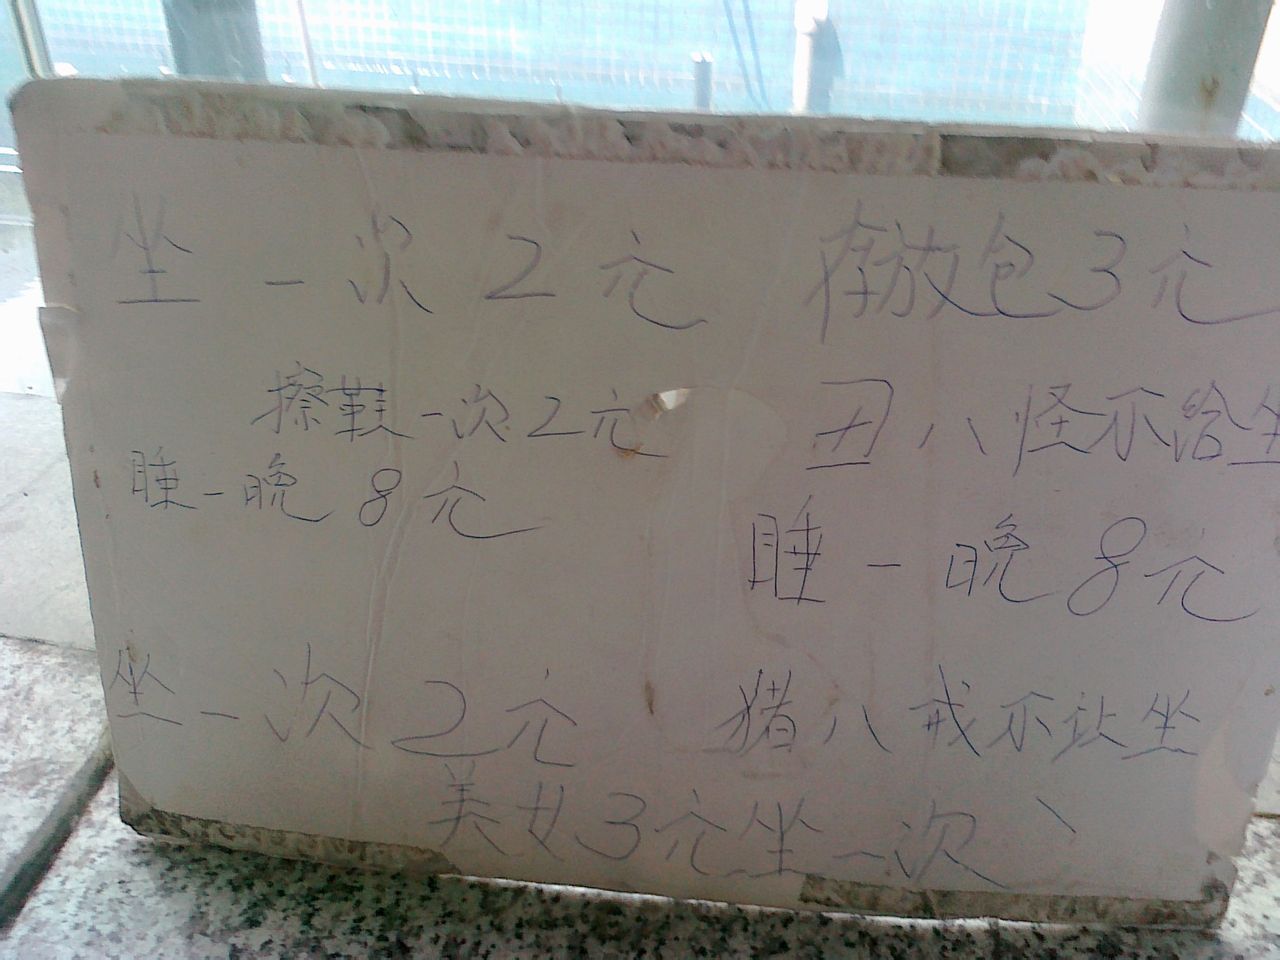 坐一次2元 存放包3元
擦鞋一次2元 丑八怪不给坐
睡一晚8元 睡一晚8元
坐一次2元 猪八戒不让坐
美女3元坐一次、